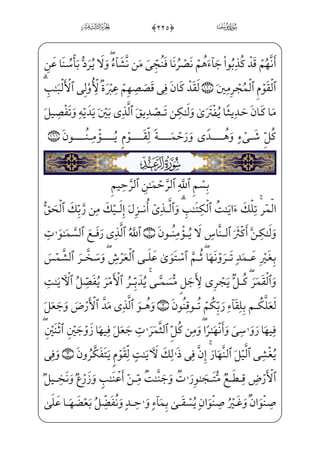 سُورَةُ يُوسُفَ ﴿٢٢٥﴾ الجُزْءُ الثَّالِثَ عَشَرَ
أَنَّهُمْ قَدْ كُذِبُوا۟ جَآءَهُمْ نَصْرُنَا فَنُجِّىَ مَن نَّشَآءُ ۖ وَلَا يُرَدُّ بَأْسُنَا عَنِ
ٱلْقَوْمِ ٱلْمُجْرِمِينَ ۝ لَقَدْ كَانَ فِى قَصَصِهِمْ عِبْرَةٌ لِّأُو۟لِى ٱلْأَلْبَـٰبِ ۗ
مَا كَانَ حَدِيثًا يُفْتَرَىٰ وَلَـٰكِن تَصْدِيقَ ٱلَّذِى بَيْنَ يَدَيْهِ وَتَفْصِيلَ
كُلِّ شَىْءٍ وَهُدًى وَرَحْمَةً لِّقَوْمٍ يُؤْمِنُونَ ۝
سُورَةُ الرَّعْدِ
بِسْمِ ٱللَّهِ ٱلرَّحْمَـٰنِ ٱلرَّحِيمِ
الٓمٓر ۚ تِلْكَ ءَايَـٰتُ ٱلْكِتَـٰبِ ۗ وَٱلَّذِىٓ أُنزِلَ إِلَيْكَ مِن رَّبِّكَ ٱلْحَقُّ
وَلَـٰكِنَّ أَكْثَرَ ٱلنَّاسِ لَا يُؤْمِنُونَ ۝ ٱللَّهُ ٱلَّذِى رَفَعَ ٱلسَّمَـٰوَٰتِ
بِغَيْرِ عَمَدٍ تَرَوْنَهَا ۖ ثُمَّ ٱسْتَوَىٰ عَلَى ٱلْعَرْشِ ۖ وَسَخَّرَ ٱلشَّمْسَ
وَٱلْقَمَرَ ۖ كُلٌّ يَجْرِى لِأَجَلٍ مُّسَمًّى ۚ يُدَبِّرُ ٱلْأَمْرَ يُفَصِّلُ ٱلْـَٔايَـٰتِ
لَعَلَّكُم بِلِقَآءِ رَبِّكُمْ تُوقِنُونَ ۝ وَهُوَ ٱلَّذِى مَدَّ ٱلْأَرْضَ وَجَعَلَ
فِيهَا رَوَٰسِىَ وَأَنْهَـٰرًا ۖ وَمِن كُلِّ ٱلثَّمَرَٰتِ جَعَلَ فِيهَا زَوْجَيْنِ ٱثْنَيْنِ ۖ
يُغْشِى ٱلَّيْلَ ٱلنَّهَارَ ۚ إِنَّ فِى ذَٰلِكَ لَـَٔايَـٰتٍ لِّقَوْمٍ يَتَفَكَّرُونَ ۝ وَفِى
ٱلْأَرْضِ قِطَعٌ مُّتَجَـٰوِرَٰتٌ وَجَنَّـٰتٌ مِّنْ أَعْنَـٰبٍ وَزَرْعٌ وَنَخِيلٌ
صِنْوَانٌ وَغَيْرُ صِنْوَانٍ يُسْقَىٰ بِمَآءٍ وَٰحِدٍ وَنُفَضِّلُ بَعْضَهَا عَلَىٰ